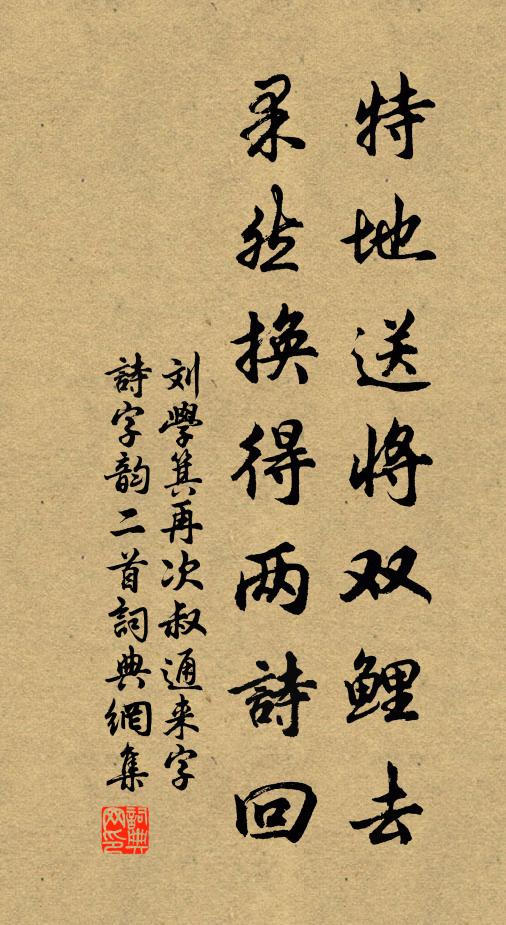 特地送将双鲤去
果然换得两詩回
刘學箕再次叔通来字
詩字韵二首詞典網集
詞典網印